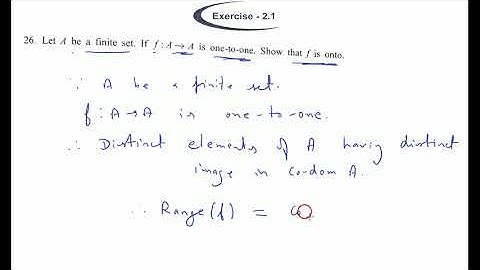 Exercise - 2.1
26. Let A be a finite set. If f : A → A is one-to-one. Show that f is onto.
∵ A be a finite set.
f : A → A is one-to-one.
∴ Distinct elements of A havig distinct
image in co-dom A.
∴ Range(f) = co